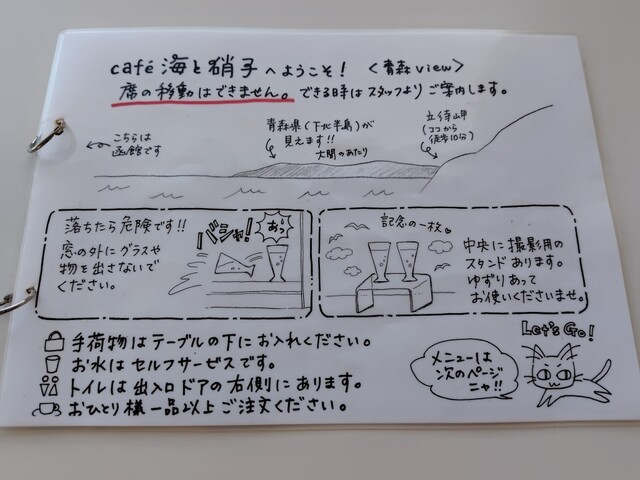 café 海と硝子へようこそ! <青森view>
席の移動はできません。できる時はスタッフよりご案内します。
こちらは
函館です
青森県(下北半島)が
見えます!!
大間のあたり
立待岬
(ココから
徒歩10分)
落ちたら危険です!!
窓の外にグラスや
物を出さないで
ください。
バシャ!
あっ
記念の一枚
中央に撮影用の
スタンドあります。
ゆずりあって
お使いくださいませ。
手荷物はテーブルの下にお入れください。
お水はセルフサービスです。
トイレは出入口ドアの右側にあります。
おひとり様一品以上ご注文ください。
Let's Go!
メニューは
次のページ
ニャ!!